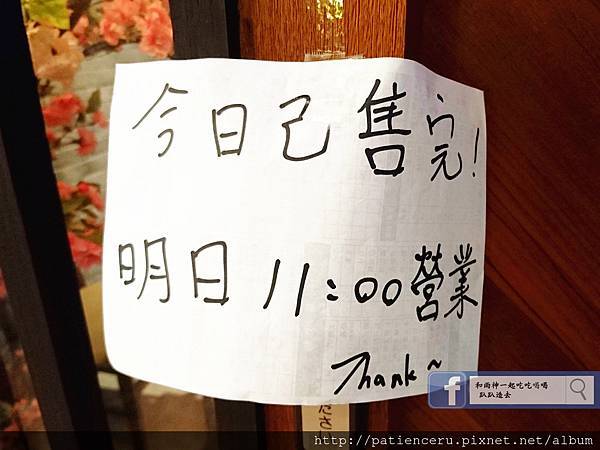 今日己售完!
明日 11:00 營業
Thank~
ださい
和雨神一起吃吃喝喝
趴趴造去
http://patienceru.pixnet.net/album